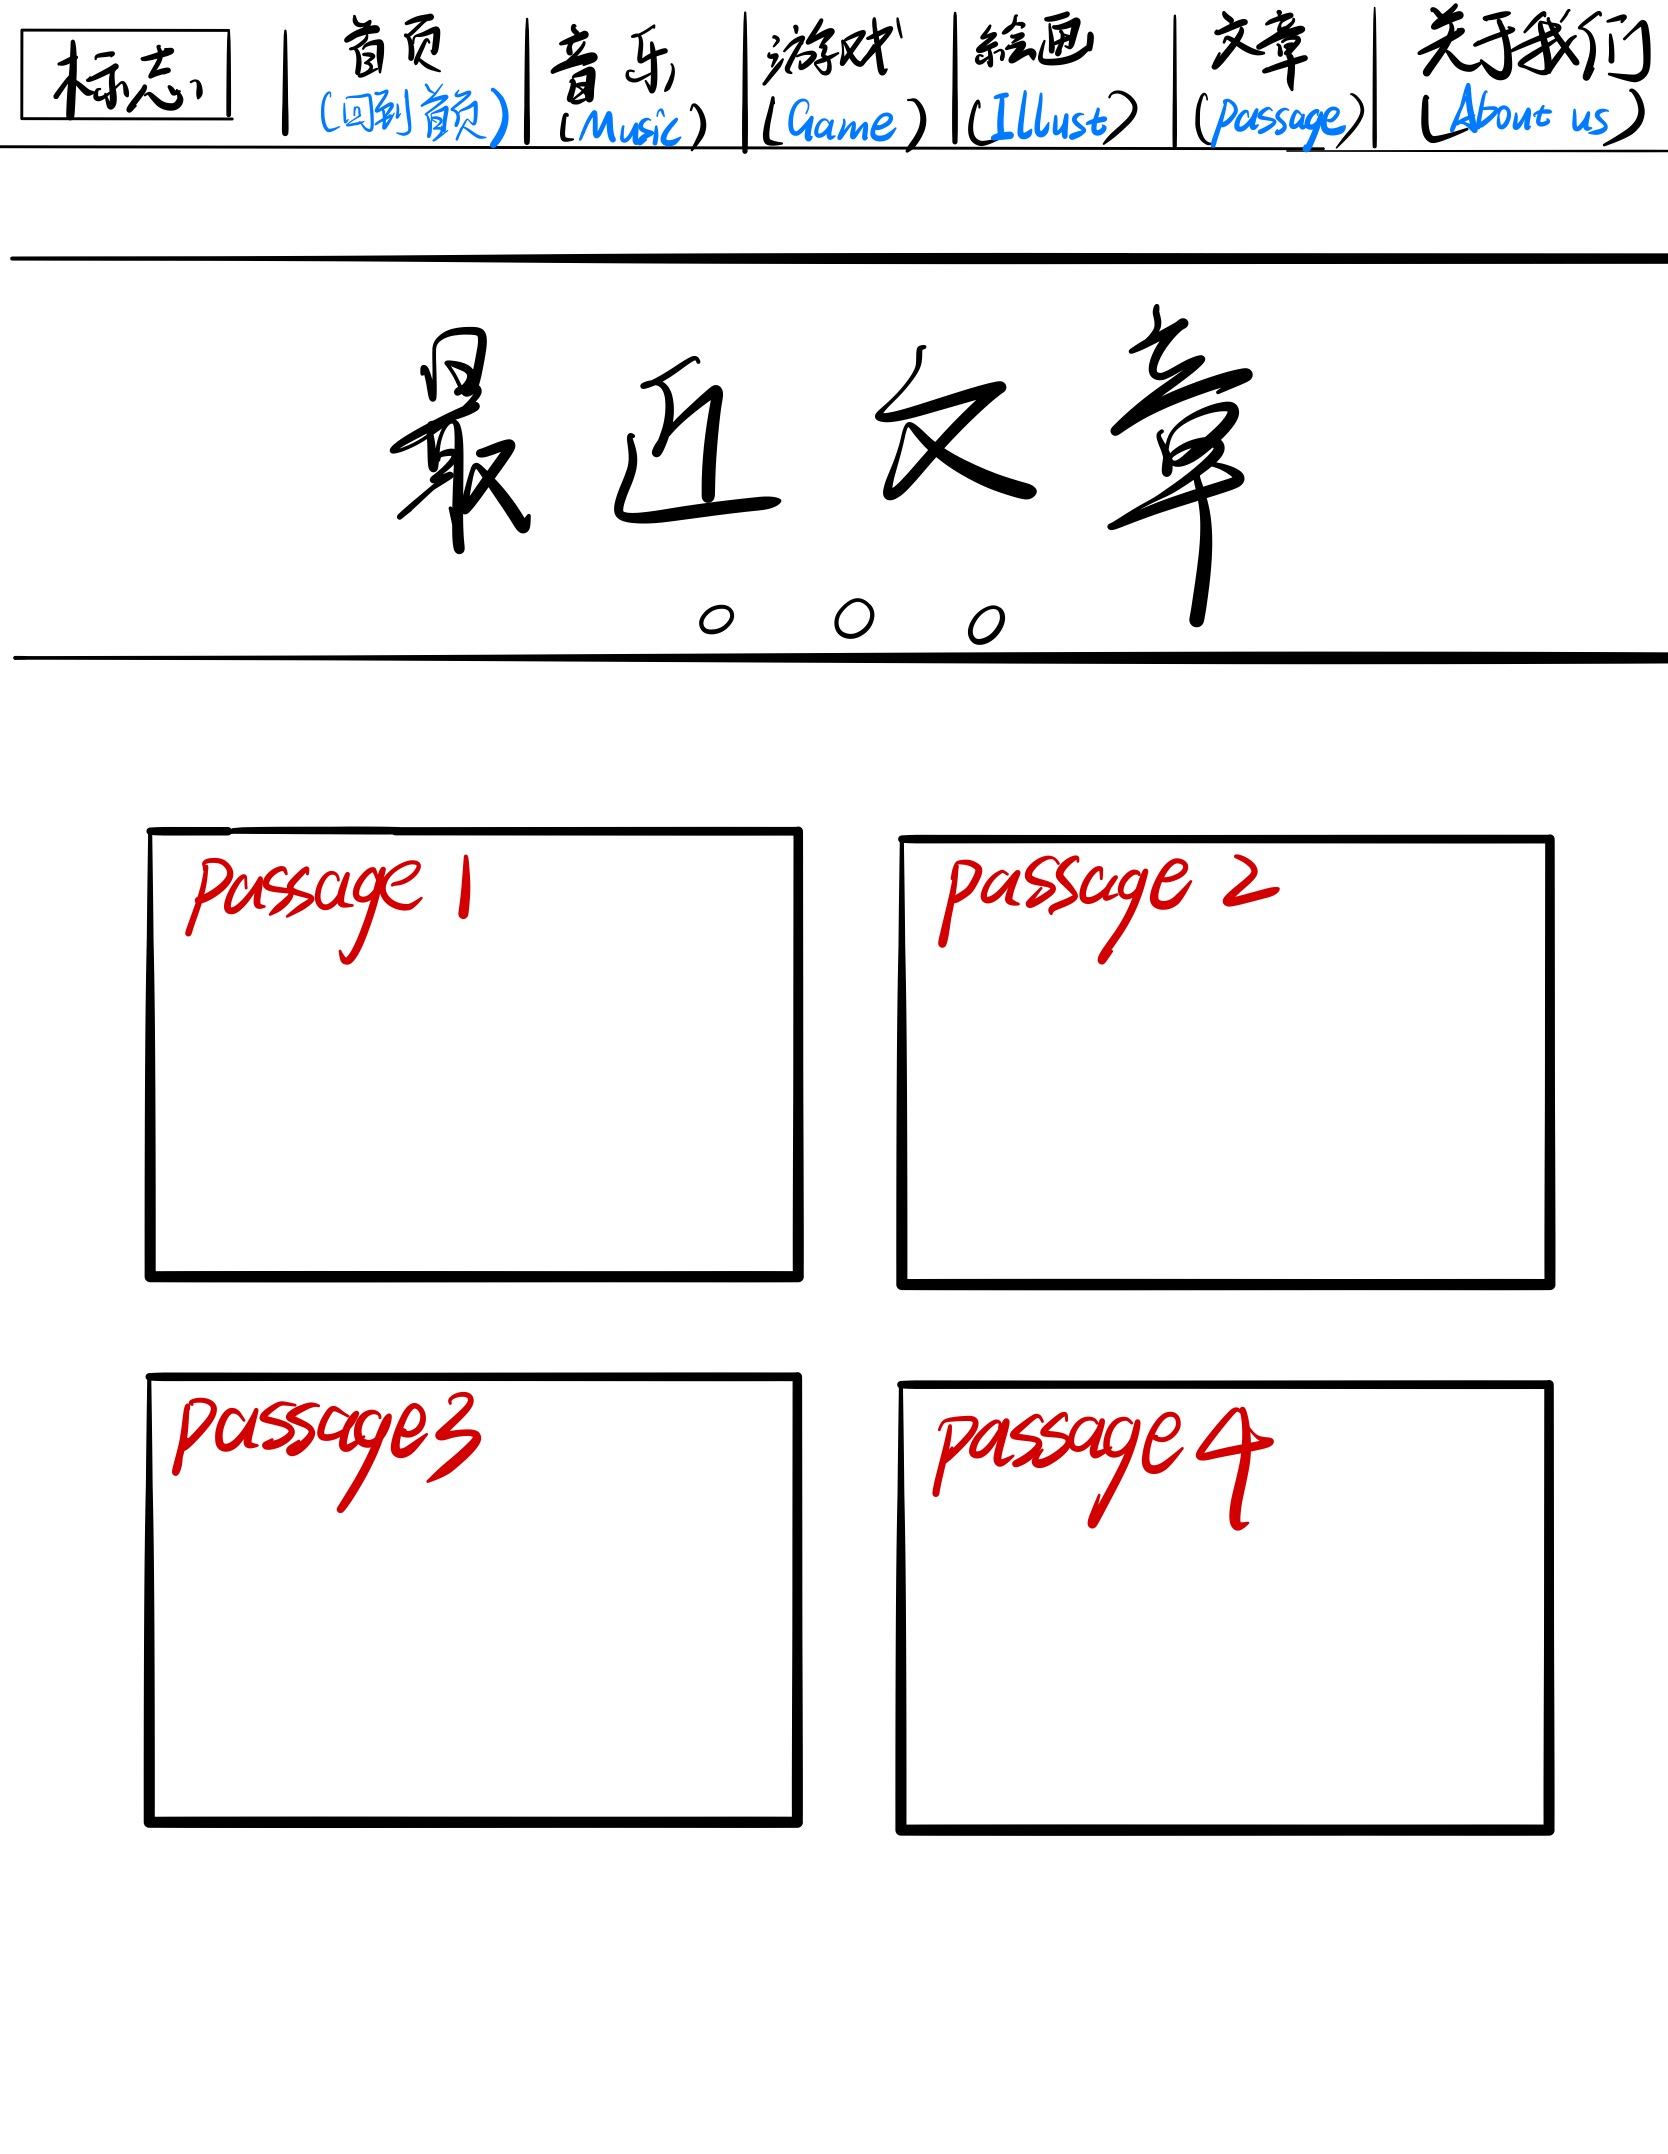 标志
首页
(回到首页)
音乐
(Music)
游戏
(Game)
絵画
(Illust)
文章
(passage)
关于我们
(About us)
最近文章
passage 1
passage 2
passage 3
passage 4